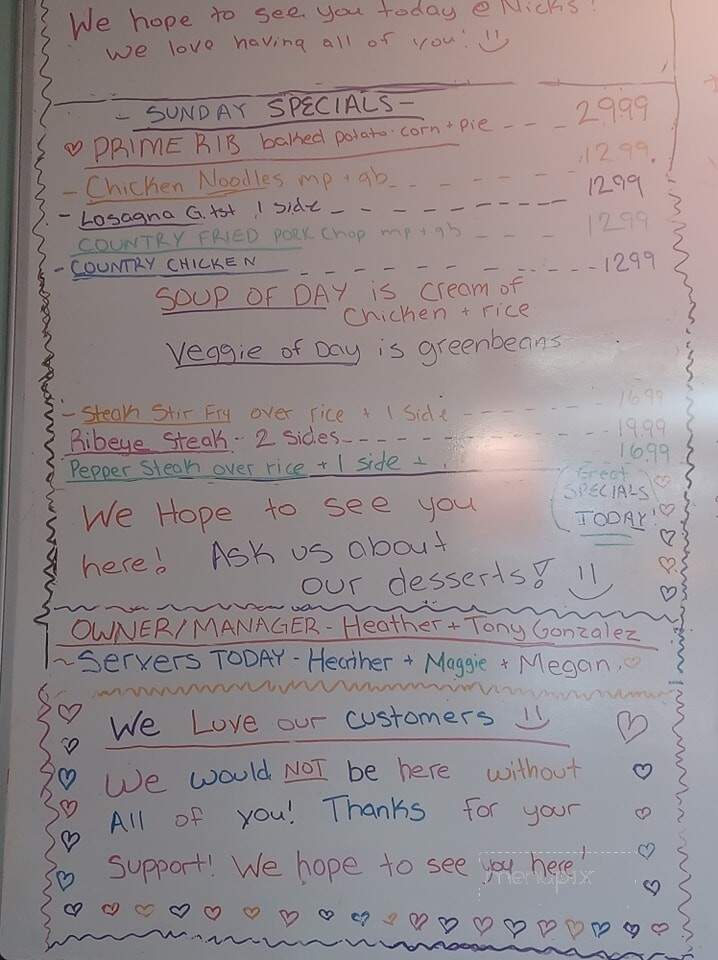 We hope to see you today @ Nicks!
we love having all of you!
- SUNDAY SPECIALS -
PRIME RIB baked potato · corn + pie - - - 29.99
- Chicken Noodles mp + gb - - - - - - 12.99.
- Losagna G. tst , 1 side - - - - - - - - 12.99
COUNTRY FRIED PORK Chop mp + gb - - - 12.99
- COUNTRY CHICKEN - - - - - - - - - - - - 12.99
SOUP OF DAY is cream of
chicken + rice
Veggie of Day is greenbeans
- Steak Stir Fry over rice + 1 Side - - - - - - - 16.99
Ribeye Steak - 2 Sides - - - - - - - - - - 19.99
Pepper Steak over rice + 1 side + 16.99
Great
SPECIALS
TODAY!
We Hope to see you
here! Ask us about
our desserts!
OWNER/MANAGER - Heather + Tony Gonzalez
~ Servers TODAY - Heather + Maggie + Megan.
We Love our customers
We would NOT be here without
All of you! Thanks for your
Support! We hope to see you here!
menupix